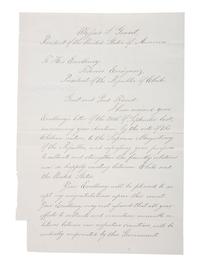 Ulysses S. Grant,
President of the United States of America
To His Excellency
Federico Errázuriz,
President of the Republic of Chile
Great and Good Friend:
I have received your
Excellency's letter of the 20th of September last,
announcing your elevation by the vote of the
Chilian nation, to the Supreme Magistracy
of the Republic, and expressing your purpose
to cultivate and strengthen the friendly relations
now so happily existing between Chile and
the United States.
Your Excellency will be pleased to ac-
cept my congratulations upon this event.
Your Excellency may rest assured that all your
efforts to
between our respective countries will be
cordially reciprocated by this Government.